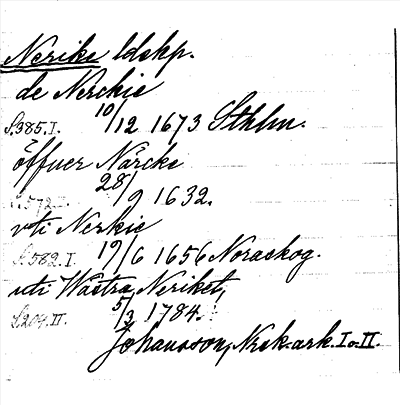 Nerike ldskp.
de Nerckie
S.385.I. 10/12 1673 Sthlm.
öffuer Närcke
S.572.I. 28/9 1632.
vti Nerkie
S.582.I. 19/6 1656 Noraskog.
uti Wästra Neriket,
S.209.II. 5/3 1784.
Johansson, Nrek.ark. I o. II.